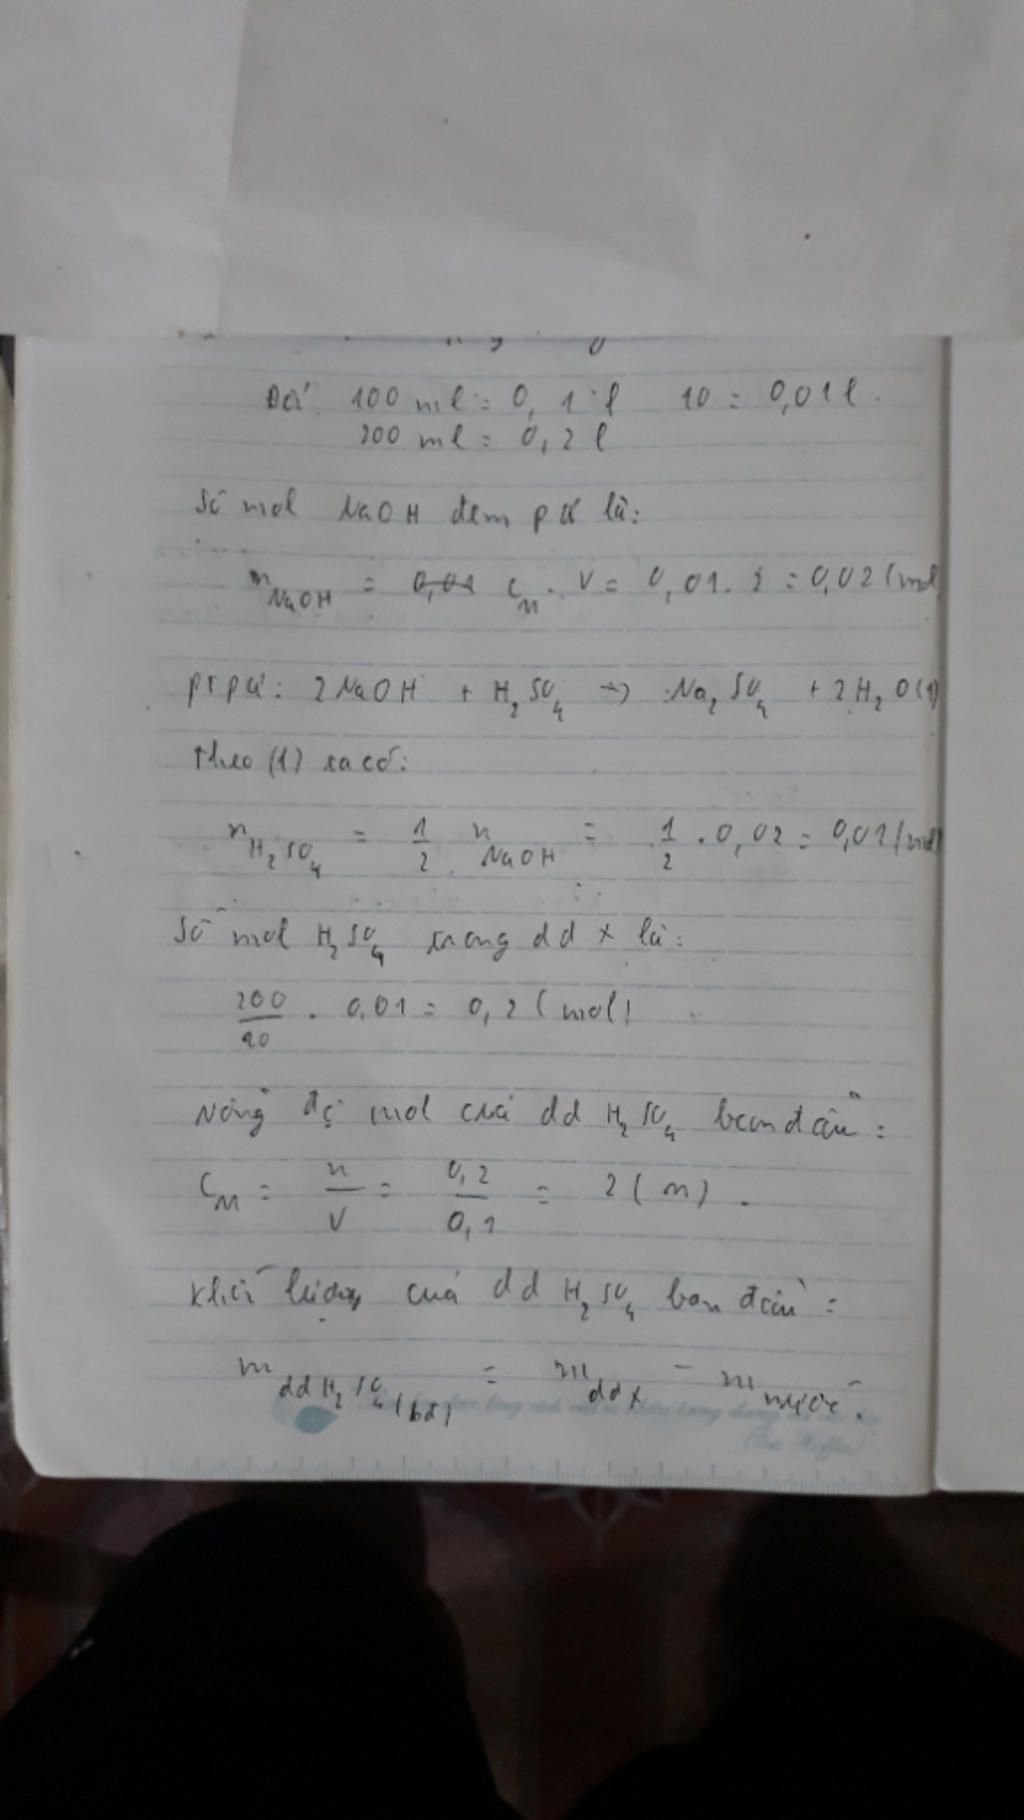 Đổi 100 ml = 0,1 l 10 = 0,01 l.
200 ml = 0,2 l
Số mol NaOH đem pứ là:
n NaOH = C M . V = 0,01. 2 = 0,02 (mol
pt pứ: 2NaOH + H₂SO₄ → Na₂SO₄ + 2H₂O (1)
theo (1) ta có:
n H₂SO₄ = 1/2 n NaOH = 1/2 . 0,02 = 0,01 (mol
Số mol H₂SO₄ trong dd x là:
200/10 . 0,01 = 0,2 (mol)
Nồng độ mol của dd H₂SO₄ ban đầu:
C M = n/V = 0,2/0,1 = 2 (M).
Khối lượng của dd H₂SO₄ ban đầu:
m dd H₂SO₄ (bđ) = m dd x - m nước.